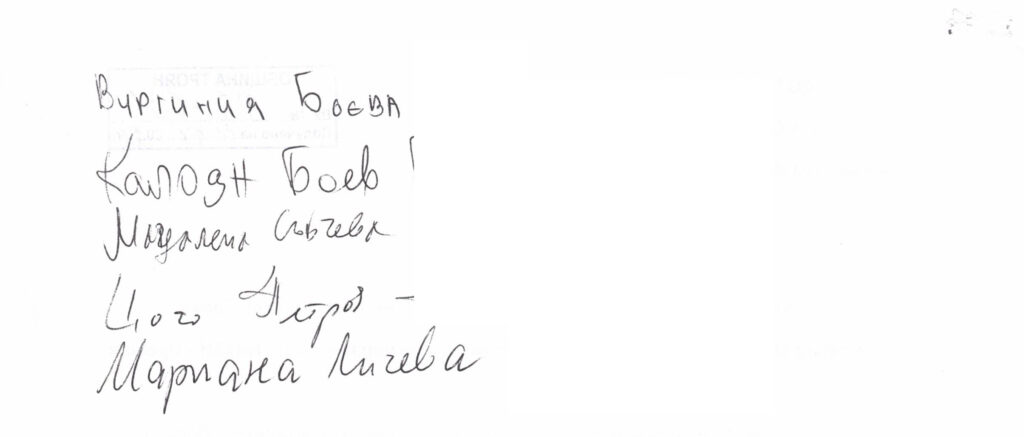 Вургиния Боева
Калоян Боев
Магдалена
Цого Петров -
Мариана Личева